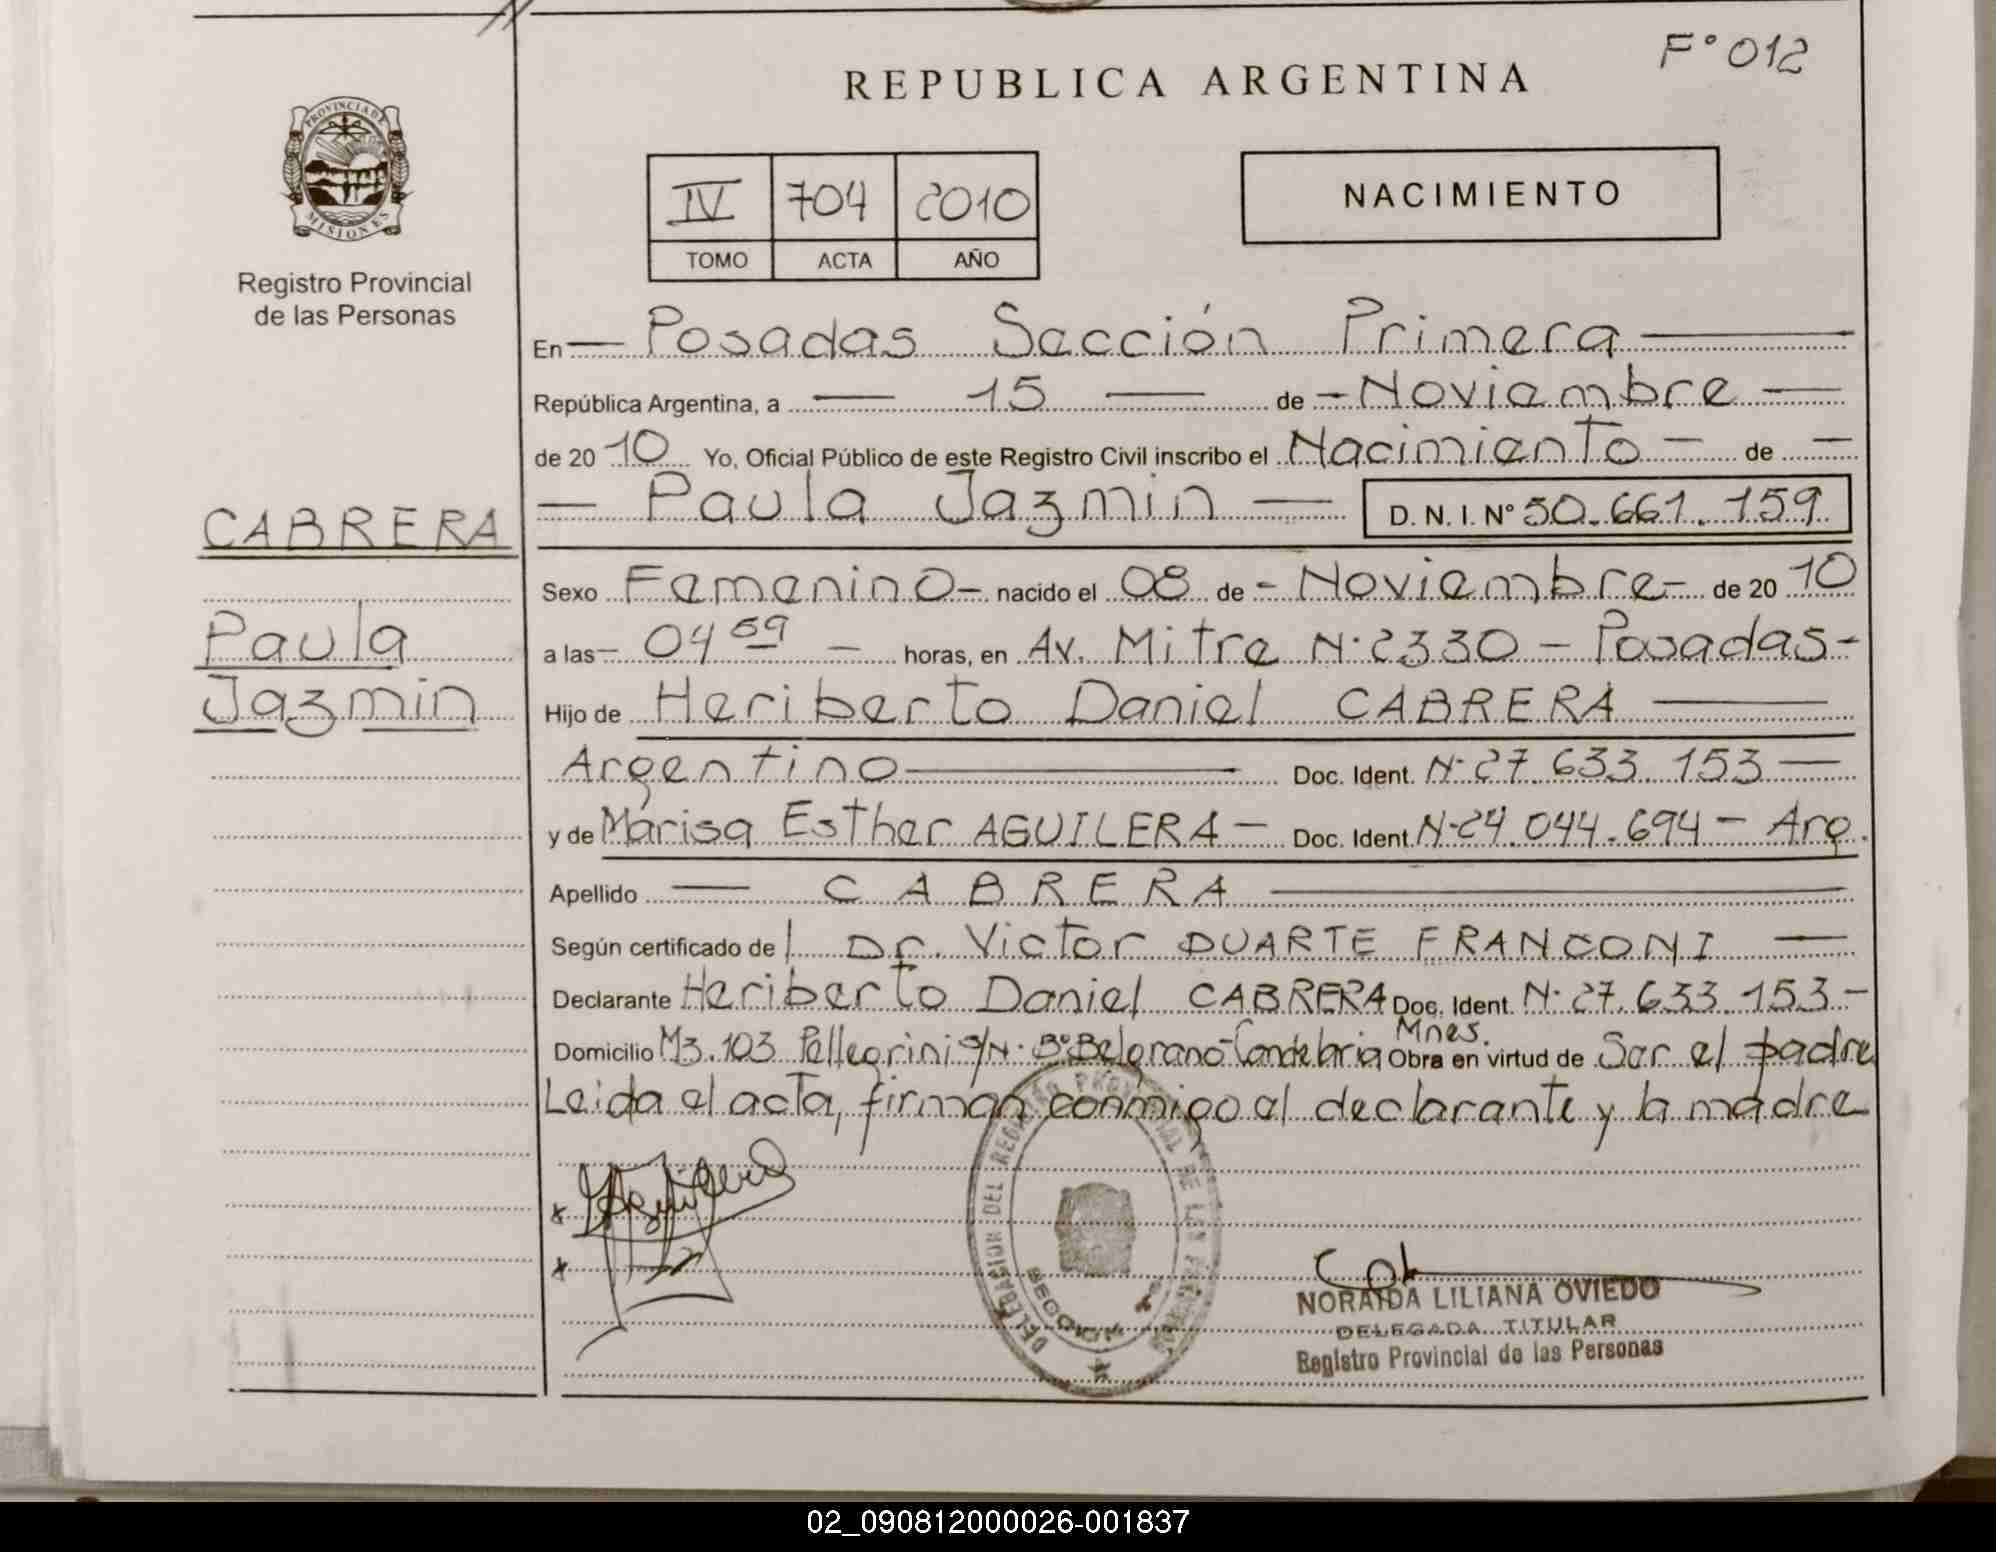 F° 012
REPUBLICA ARGENTINA
PROVINCIA DE
MISIONES
Registro Provincial
de las Personas
IV 704 2010
TOMO ACTA AÑO
NACIMIENTO
En — Posadas Sección Primera —
República Argentina, a — 15 — de - Noviembre —
de 2010 Yo, Oficial Público de este Registro Civil inscribo el Nacimiento — de —
— Paula Jazmin — D. N. I. N° 50.661.159
CABRERA
Paula
Jazmin
Sexo Femenino - nacido el 08 de - Noviembre - de 2010
a las - 04 59 - horas, en Av. Mitre N° 2330 - Posadas -
Hijo de Heriberto Daniel CABRERA —
Argentino — Doc. Ident. N° 27.633.153 —
y de Marisa Esther AGUILERA - Doc. Ident. N° 24.044.694 - Arg.
Apellido — CABRERA —
Según certificado de l Dr. Victor DUARTE FRANCONI —
Declarante Heriberto Daniel CABRERA Doc. Ident. N° 27.633.153 -
Domicilio Mz.103 Pellegrini S/N° B° Belgrano - Candelaria Mnes. Obra en virtud de Ser el padre
Leida el acta, firman conmigo el declarante y la madre
x
x
DELEGACION DEL REGISTRO PROVINCIAL DE LAS PERSONAS
NORAIDA LILIANA OVIEDO
DELEGADA TITULAR
Registro Provincial de las Personas
02_090812000026-001837